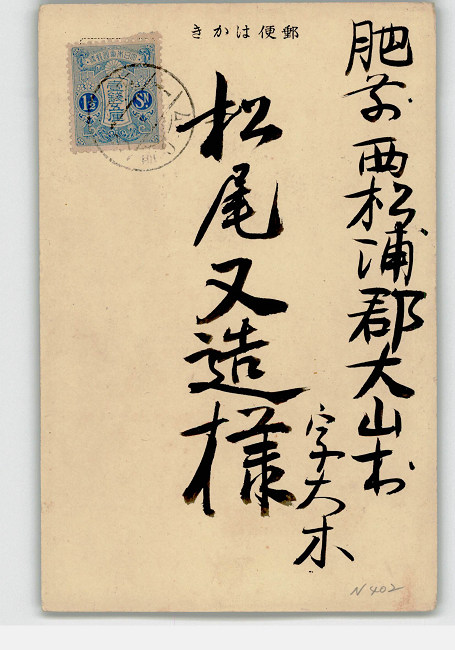 郵便はかき
肥前西松浦郡大山村
字大木
松尾又造様
1½
Sn
N402